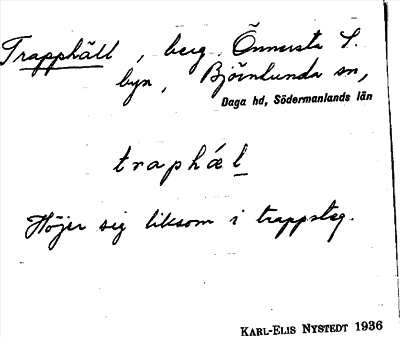 Trapphäll, berg, Önnersta S.
byn, Björnlunda sn,
Daga hd, Södermanlands län
traphæl
Höjer sig liksom i trappsteg.
KARL-ELIS NYSTEDT 1936